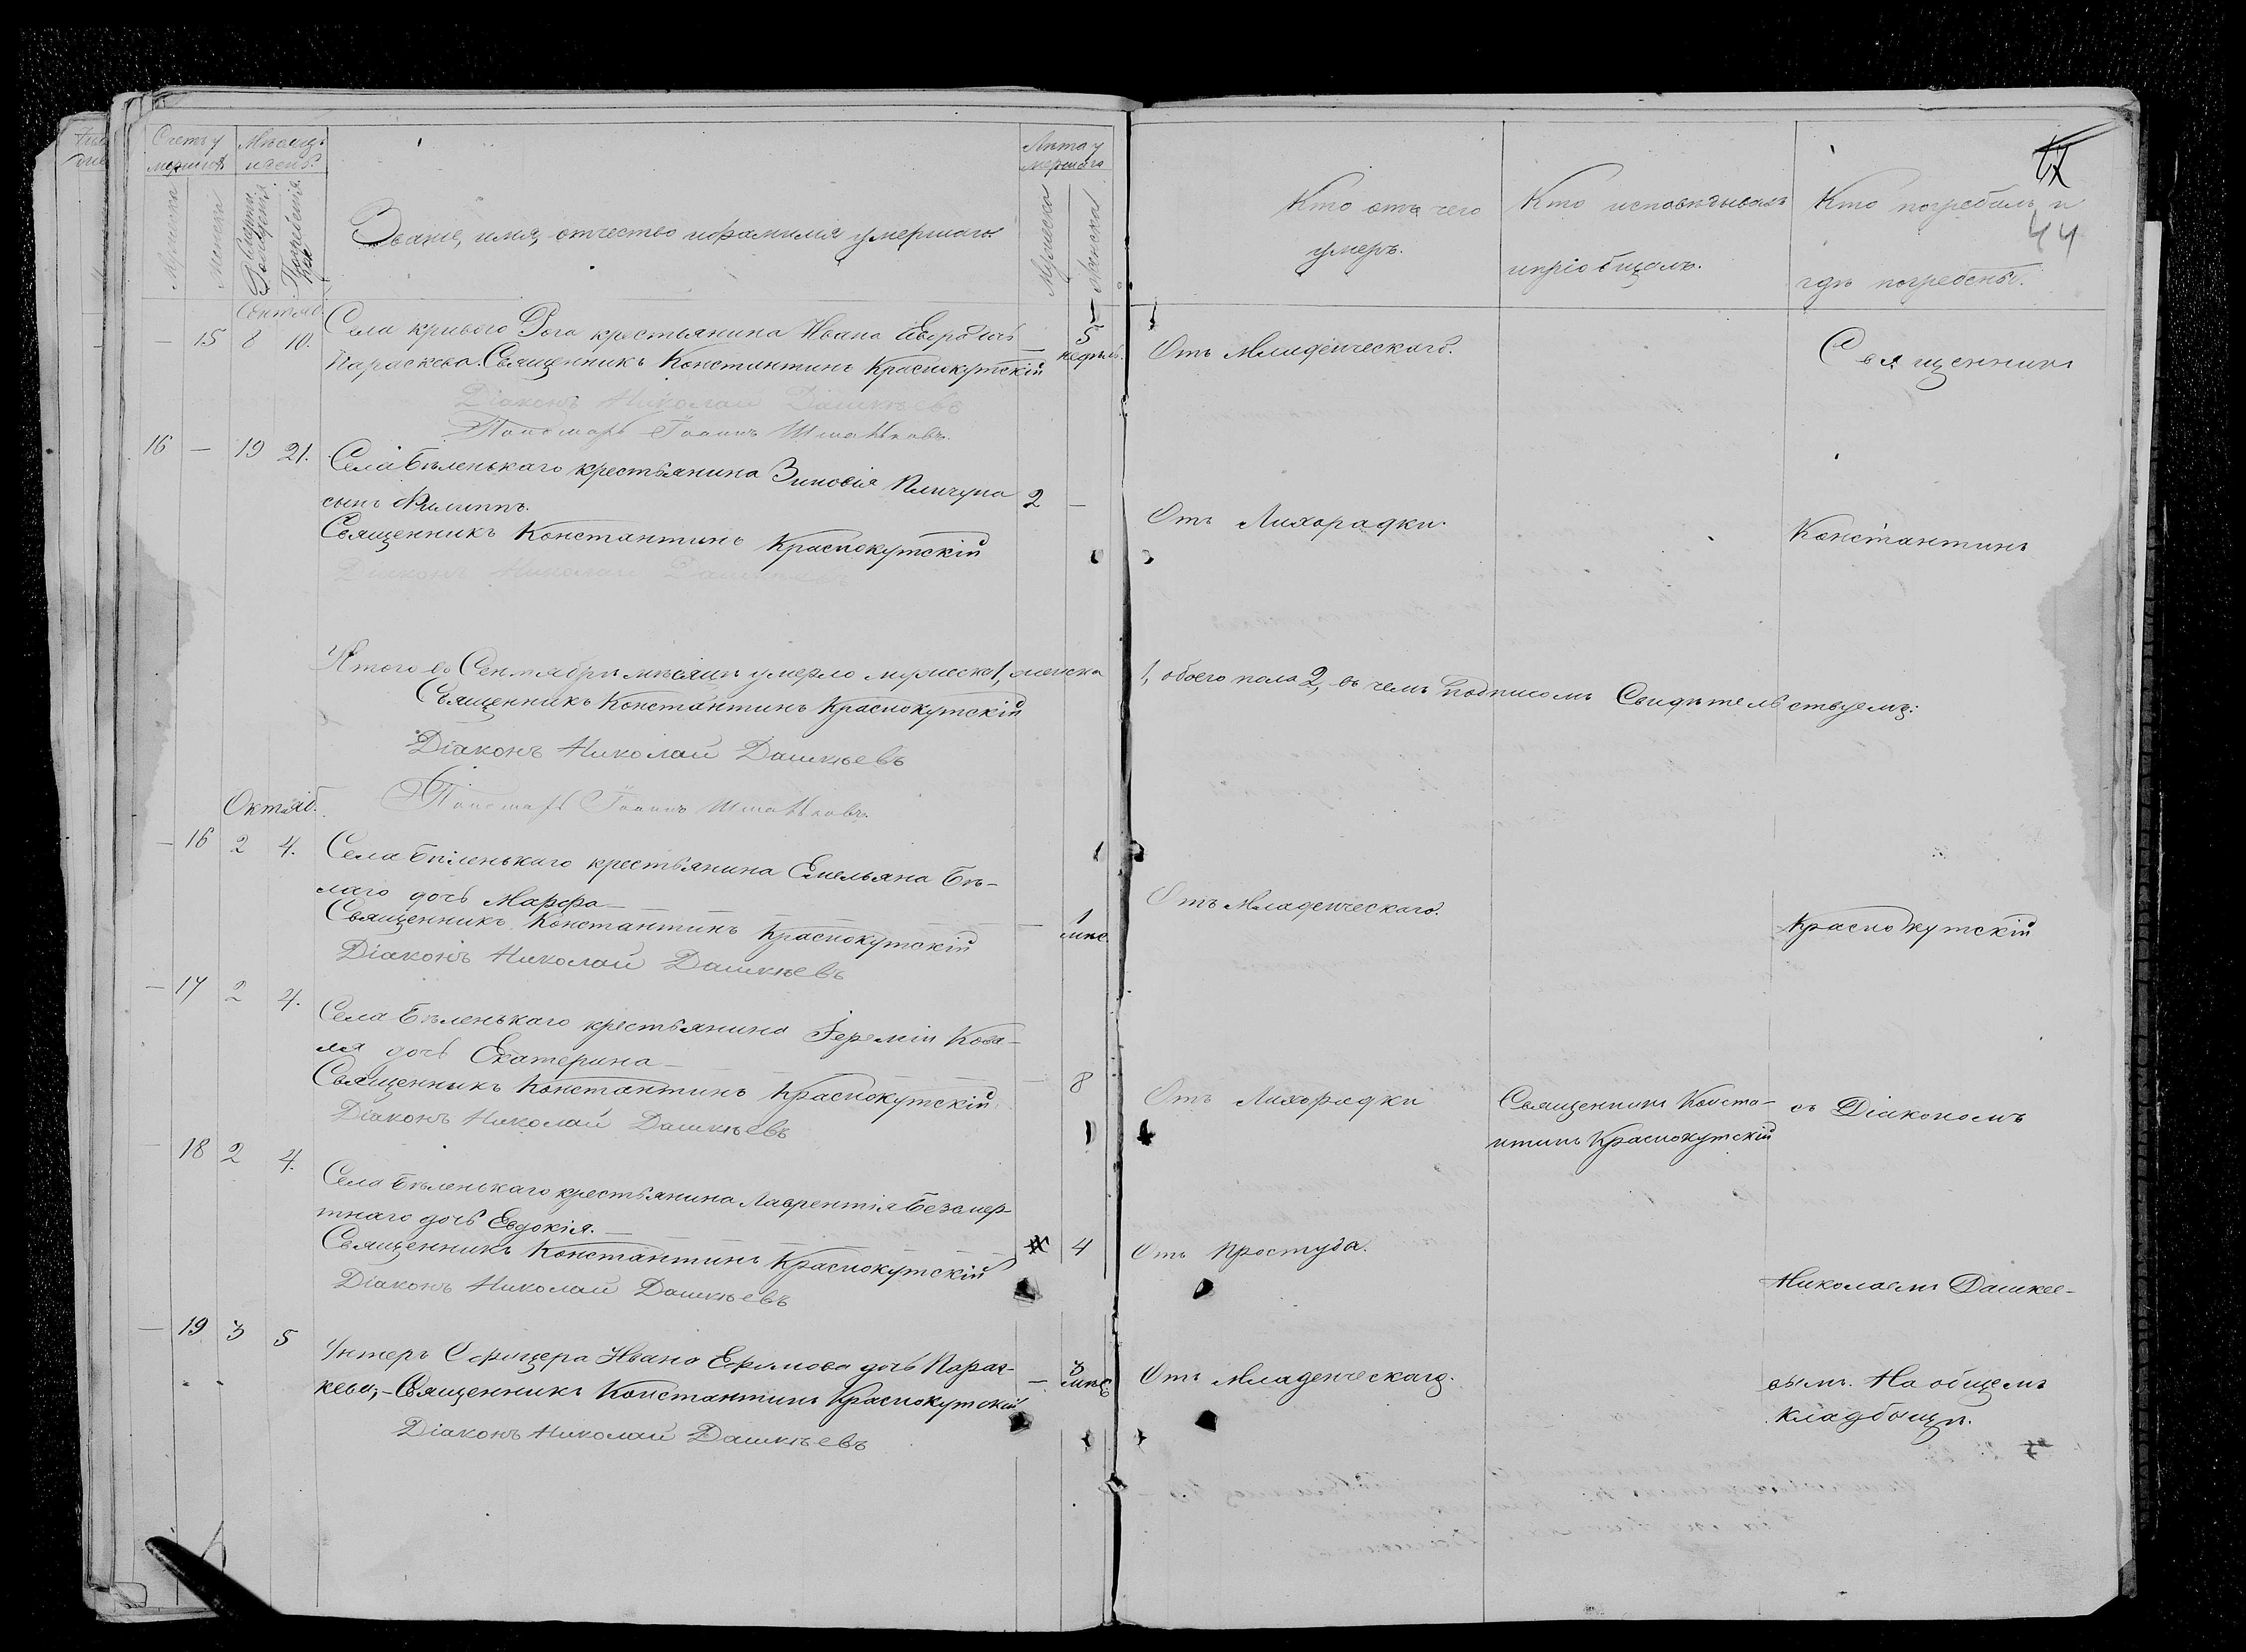 Счетъ у
мершихъ
Мѣсяцъ
и день.
Лѣта у
мершаго
Мужеска
Женска
Смерти
Погребенія
Званіе, имя, отчество и фамилія умершаго.
Мужеска
Женска
Кто отъ чего
умеръ.
Кто исповѣдывалъ
и пріобщалъ.
Кто погребалъ и
гдѣ погребены.
44
Сентяб.
— 15 8 10. Села криваго Рога крестьянина Ивана дочь — 5
Параскева. Священникъ Константинъ Краснокутскій недѣль. Отъ Младенческаго. Священникъ
Діаконъ Николай Дашкѣевъ
Пономарь Іоаннъ
16 — 19 21. Села Бѣленькаго крестьянина Зиновія
сынъ Филиппъ. 2 — Отъ Лихорадки. Константинъ
Священникъ Константинъ Краснокутскій
Діаконъ Николай Дашкѣевъ
Итого въ Сентябрѣ мѣсяцѣ умерло мужеска 1, женска 1, обоего пола 2, въ чемъ подписомъ Свидѣтельствуемъ:
Священникъ Константинъ Краснокутскій
Діаконъ Николай Дашкѣевъ
Пономарь Іоаннъ
Октяб.
— 16 2 4. Села Бѣленькаго крестьянина Емельяна Бѣ-
лаго дочь Марфа — Отъ Младенческаго.
Священникъ Константинъ Краснокутскій — 1 мѣс. Краснокутскій
Діаконъ Николай Дашкѣевъ
— 17 2 4. Села Бѣленькаго крестьянина Іереміи Кова-
ля дочь Екатерина —
Священникъ Константинъ Краснокутскій — 8 Отъ Лихорадки Священникъ Конста- съ Діакономъ
Діаконъ Николай Дашкѣевъ нтинъ Краснокутскій
— 18 2 4. Села Бѣленькаго крестьянина Лаврентія Безсмер-
тнаго дочь Евдокія. —
Священникъ Константинъ Краснокутскій 4 Отъ Простуда.
Діаконъ Николай Дашкѣевъ Николаемъ Дашкее-
— 19 3 5 Унтеръ Офицера Ивана Ефимова дочь Парас-
кева, — Священникъ Константинъ Краснокутскій — мѣс. Отъ Младенческаго. вымъ. На общемъ
Діаконъ Николай Дашкѣевъ кладбищѣ.